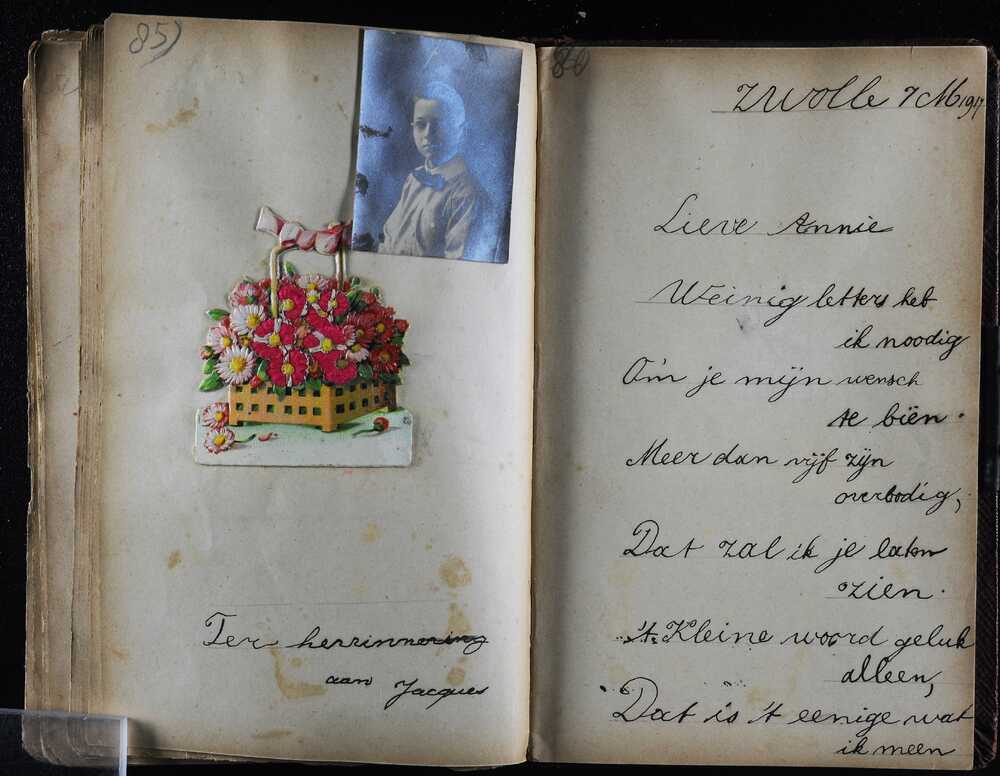 85)
Ter herrinnering
aan Jacques
86
Zwolle 7 M 1917
Lieve Annie
Weinig letters heb
ik noodig
Om je mijn wensch
te biën.
Meer dan vijf zijn
overbodig,
Dat zal ik je laten
zien.
't Kleine woord geluk
alleen,
Dat is 't eenige wat
ik meen